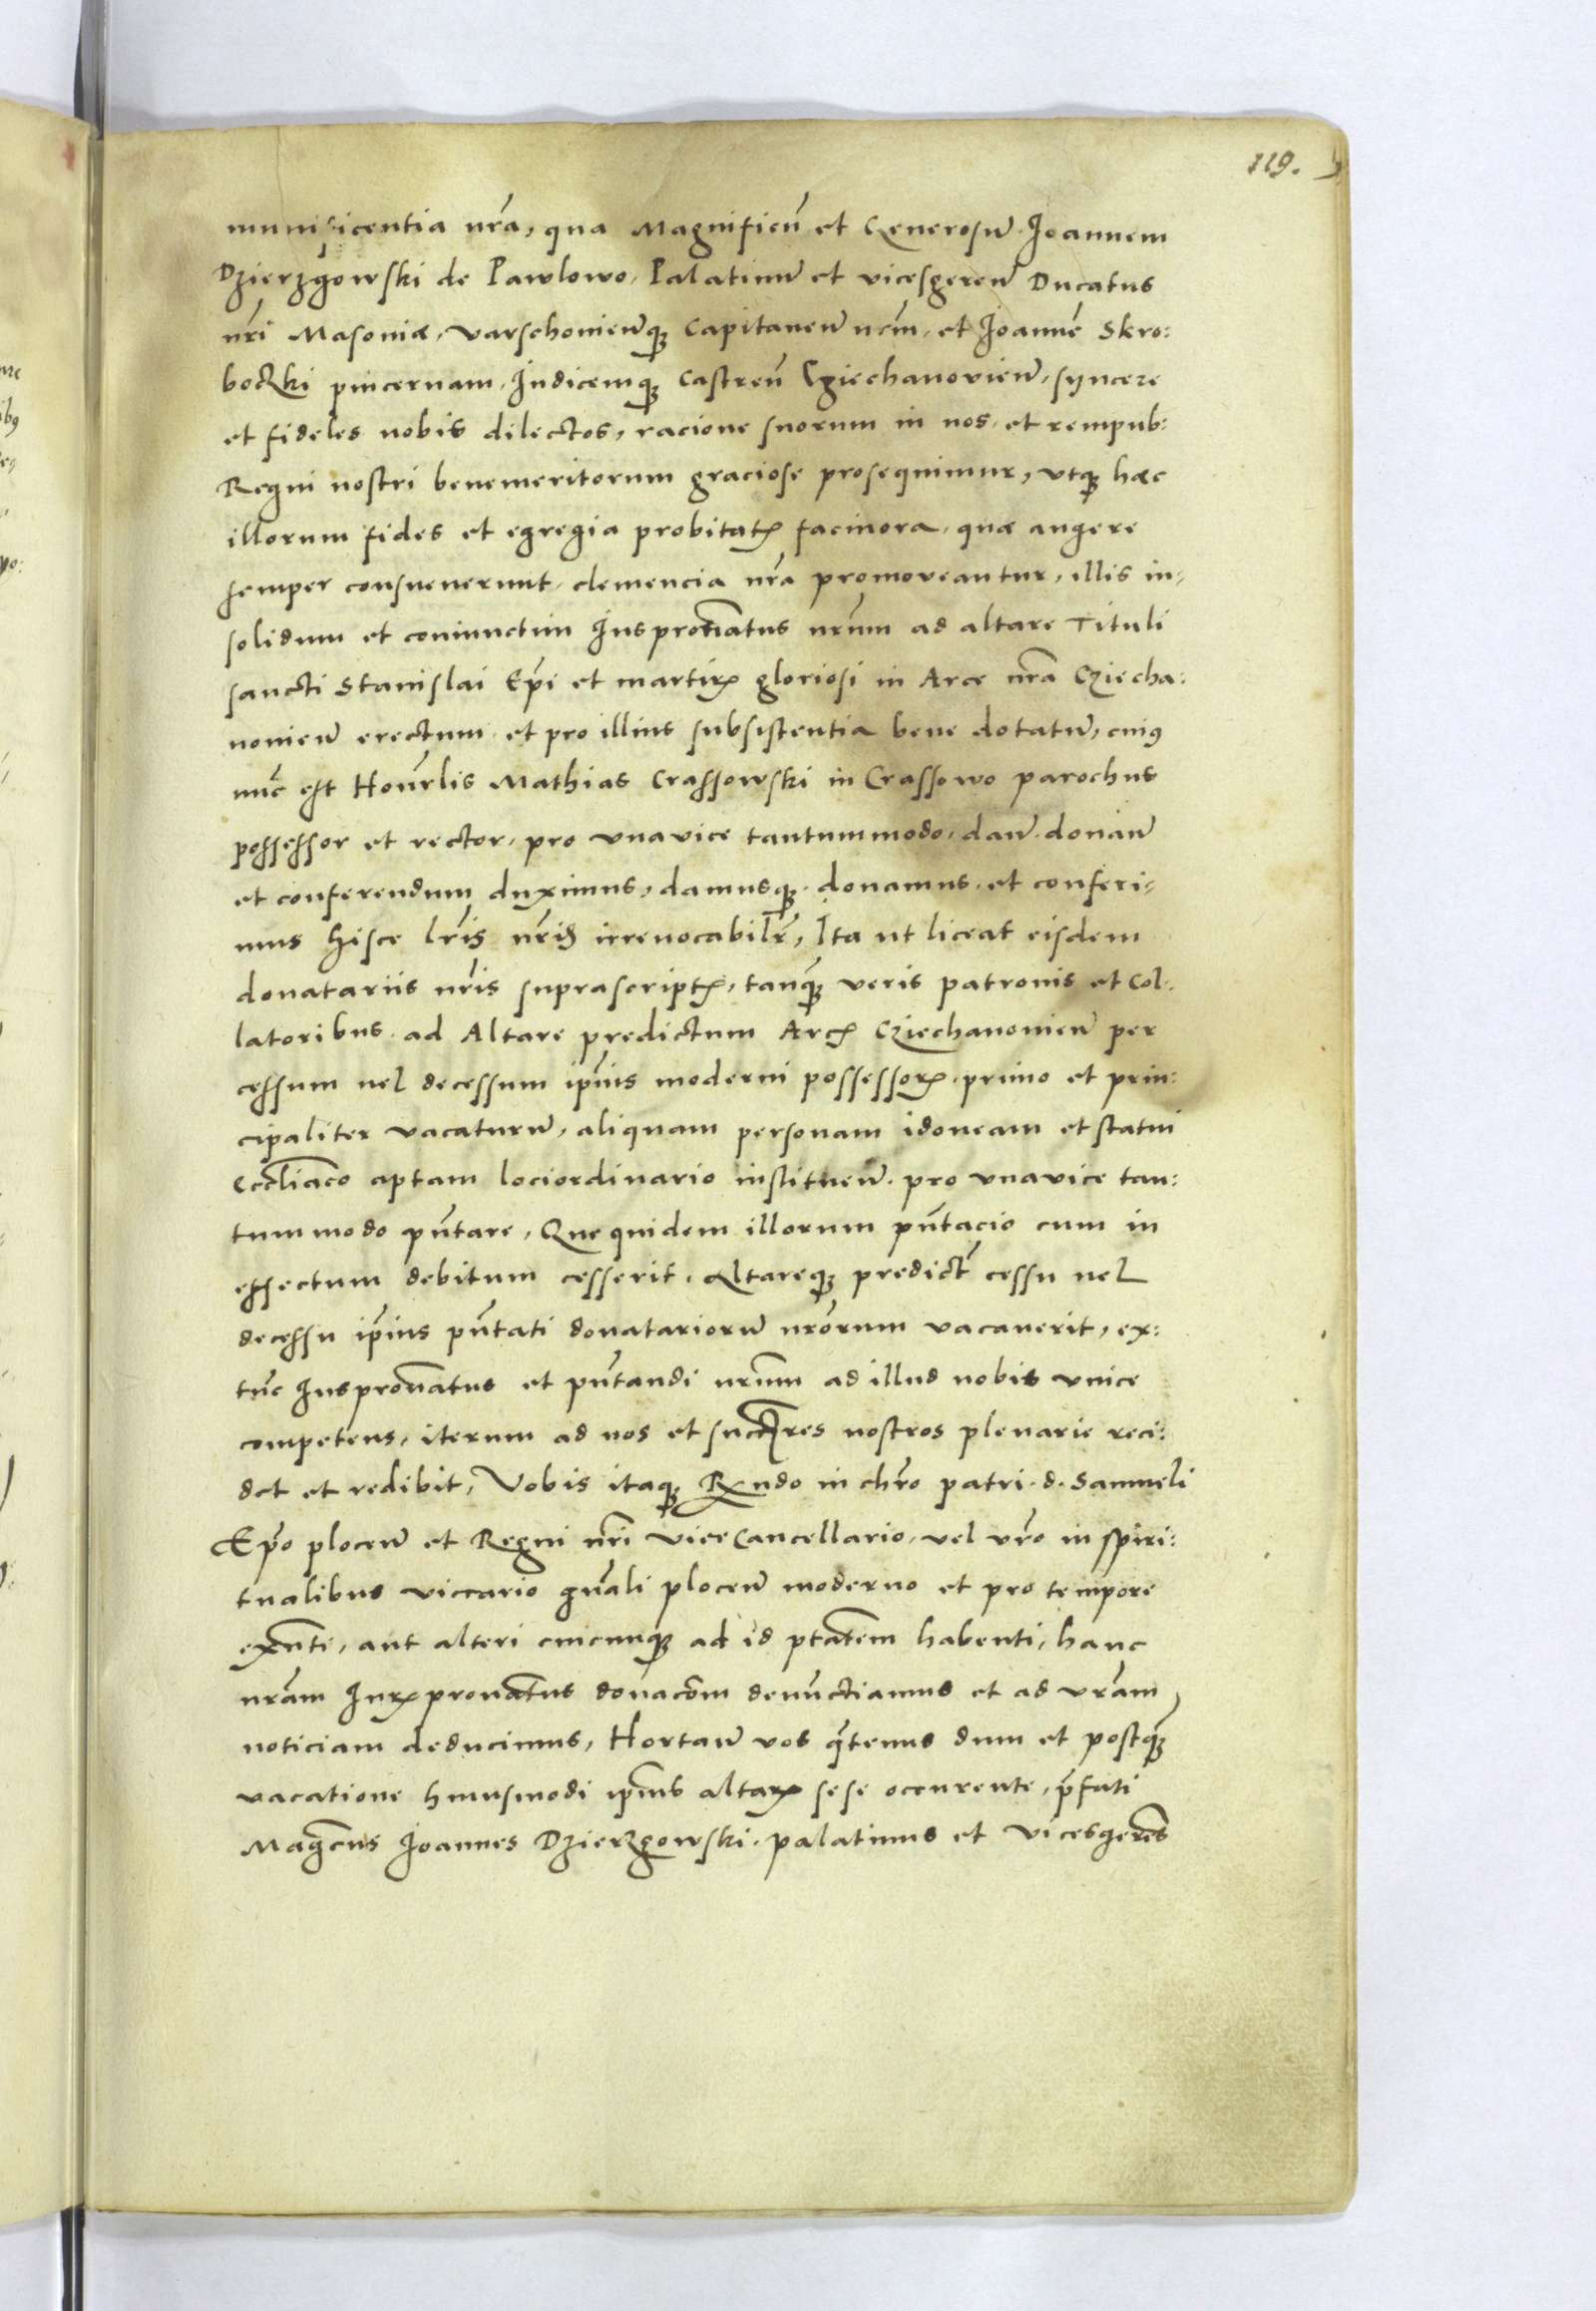 119.
munificentia nr̃a, qua Magnificũ et Generosũ Joannem
Dzierzgowski de Pawlowo, Palatinũ et vicesgereñ Ducatus
nr̃i Masoniæ, varschonieñq; Capitaneũ necñ, et Joannẽ Skro:
boczki pincernam, Judicemq; Castreñ Cziechanovieñ, syncere
et fideles nobis dilectos, racione suorum in nos, et rempub:
Regni nostri benemeritorum graciose prosequimur, utq; hæc
illorum fides et egregia probitatꝭ facinora, quæ augere
semper consueuerunt, clemencia nr̃a promoveantur, illis in-
solidum et coniunctim Juspronãtus nr̃um ad altare Tituli
sancti Stanislai Ep̃i et martirꝭ gloriosi in Arce nr̃a Cziecha:
nonieñ erectum, et pro illius subsistentia bene dotatũ, cuiꝰ
nũc est Honr̃lis Mathias Crassowski in Crassowo parochus
possessor et rector, pro una vice tantummodo, dañ. donañ
et conferendum duximus, damusq;. donamus. et conferi-
mus hisce lr̃is nr̃is irrevocabilr̃, Ita ut liceat eisdem
donatariis nr̃is suprascriptꝭ, tanq̃; veris patronis et Col-
latoribus. ad Altare predictum Arcꝭ Cziechanonieñ per
cessum uel decessum ip̃ius moderni possessorꝭ. primo et prin:
cipaliter vacaturũ, aliquam personam idoneam et statui
Eccl̃iaco aptam loci ordinario instituеñ. pro una vice tan:
tummodo pñtare, Que quidem illorum pñtacio cum in
effectum debitum cesserit, Altareq; predict̃ cessu uel
decessu ip̃ius pñtati donatariorũ nr̃orum vacauerit, ex:
tũc Juspronãtus et pñtandi nr̃um ad illud nobis vnice
competens, iterum ad nos et succr̃es nostros plenarie reci:
det et redibit, Vobis itaq; Rx̃ndo in chr̃o patri. d. Samueli
Ep̃o ploceñ et Regni nr̃i Vice Cancellario, vel vr̃o in spiri:
tualibus viccario gñali ploceñ moderno et pro tempore
exñti, aut alteri cuicunq; ad id ptãtem habenti, hanc
nr̃am Jurꝭpronãtus donacõm denũctiamus et ad vr̃am
noticiam deducimus, Hortañ vos q̃tenus dum et postq̃;
vacatione hmusmodi ip̃ius altarꝭ sese occurente, p̃fati
Magc̃us Joannes Dzierzgowski. palatinus et Vicesgerẽs